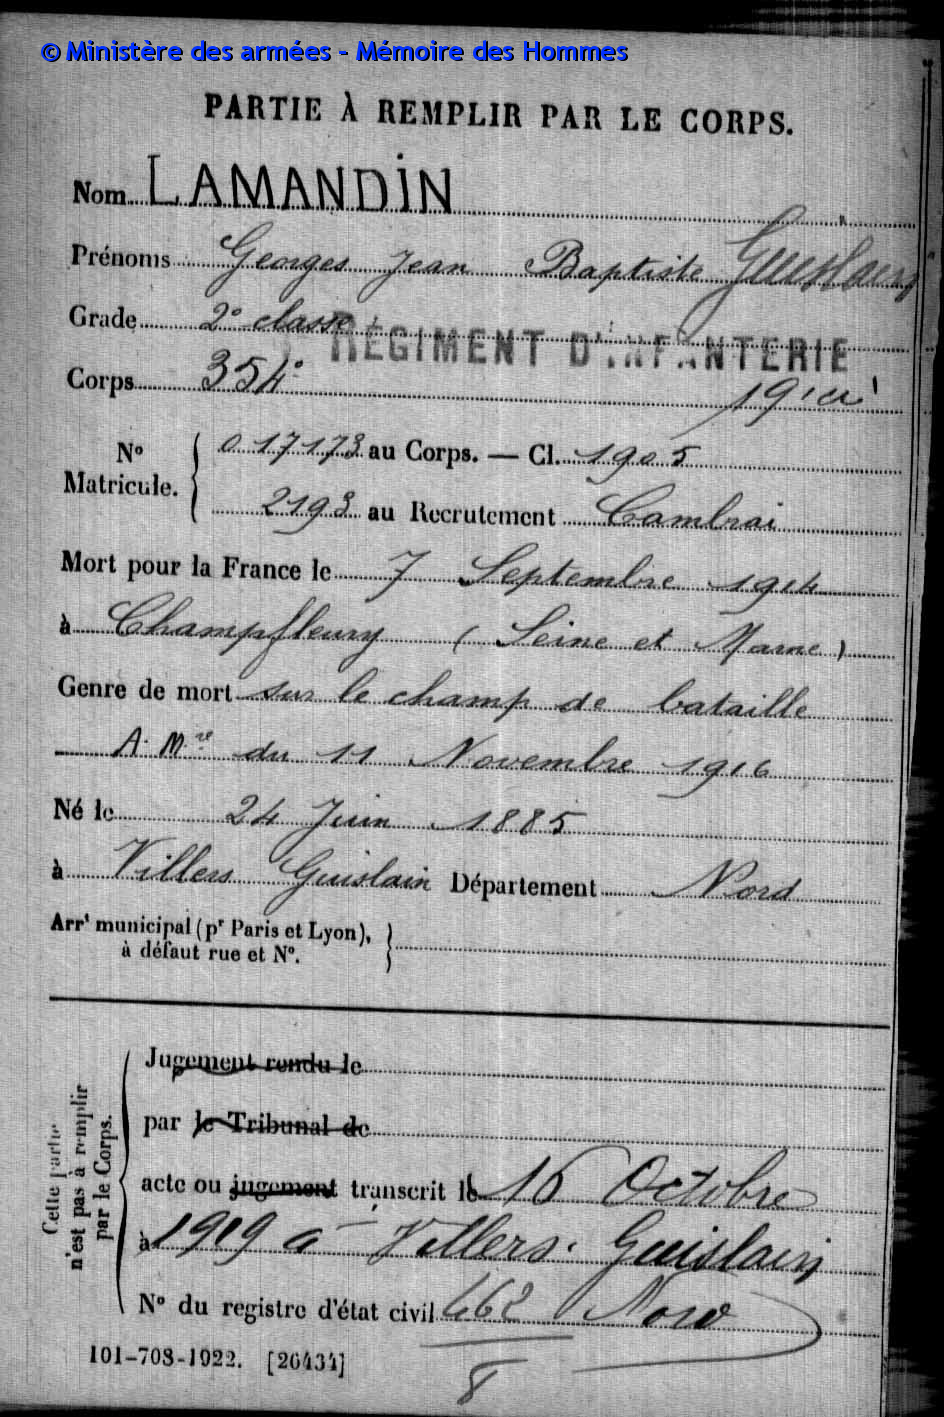 © Ministère des armées - Mémoire des Hommes
PARTIE À REMPLIR PAR LE CORPS.
Nom LAMANDIN
Prénoms Georges Jean Baptiste Guislain
Grade 2e classe
RÉGIMENT D'INFANTERIE
Corps 354e
No Matricule. { 017173 au Corps. — Cl. 1905
2193 au Recrutement Cambrai
Mort pour la France le 7 Septembre 1914
à Champfleury (Seine et Marne)
Genre de mort sur le champ de bataille
A. M.re du 11 Novembre 1916
Né le 24 Juin 1885
à Villers Guislain Département Nord
Arrt municipal (pr Paris et Lyon),
à défaut rue et No.
Cette partie
n'est pas à remplir
par le Corps.
Jugement rendu le
par le Tribunal de
acte ou jugement transcrit le 16 Octobre
à 1919 à Villers-Guislain
No du registre d'état civil 462 Nord
8
101-708-1922. [26434]